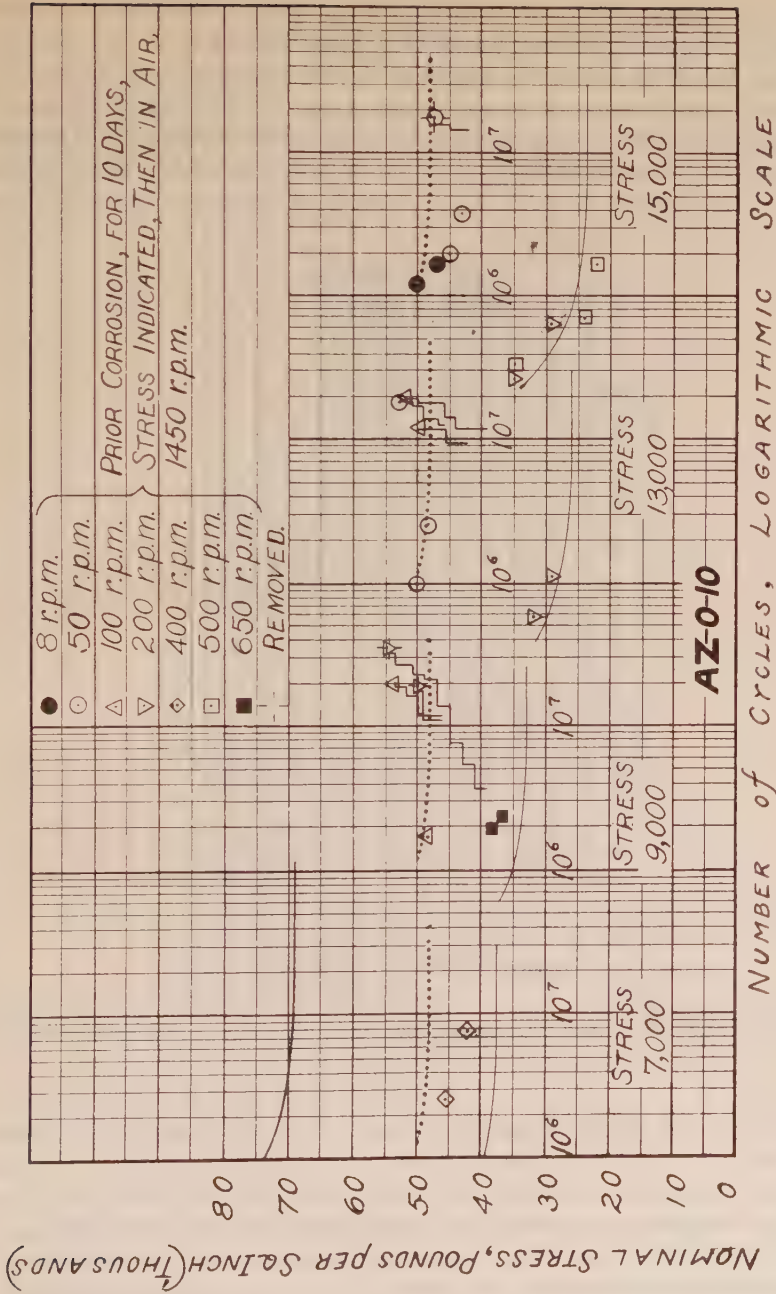 8 r.p.m.
50 r.p.m.
100 r.p.m.
200 r.p.m.
400 r.p.m.
500 r.p.m.
650 r.p.m.
REMOVED.
PRIOR CORROSION, FOR 10 DAYS,
STRESS INDICATED, THEN IN AIR,
1450 r.p.m.
80
70
60
50
40
30
20
10
0
NOMINAL STRESS, POUNDS PER SQ.INCH (THOUSANDS)
10⁶
10⁷
10⁶
10⁷
10⁶
10⁷
10⁶
10⁷
STRESS
7,000
STRESS
9,000
STRESS
13,000
STRESS
15,000
AZ-0-10
NUMBER of CYCLES, LOGARITHMIC SCALE